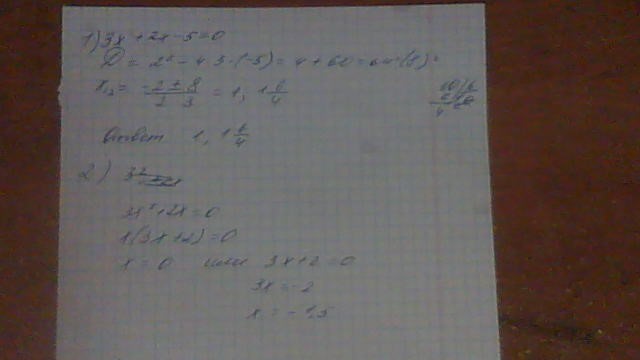 1) 3x + 2x - 5 = 0
D = 2² - 4 3·(-5) = 4 + 60 = 64 (8)²
x₁,₂ = (-2 ± 8)/(2 3) = 1, 1 6/4
Ответ 1, 1 6/4
2)
3x² + 2x = 0
x(3x + 2) = 0
x = 0 или 3x + 2 = 0
3x = -2
x = -1,5